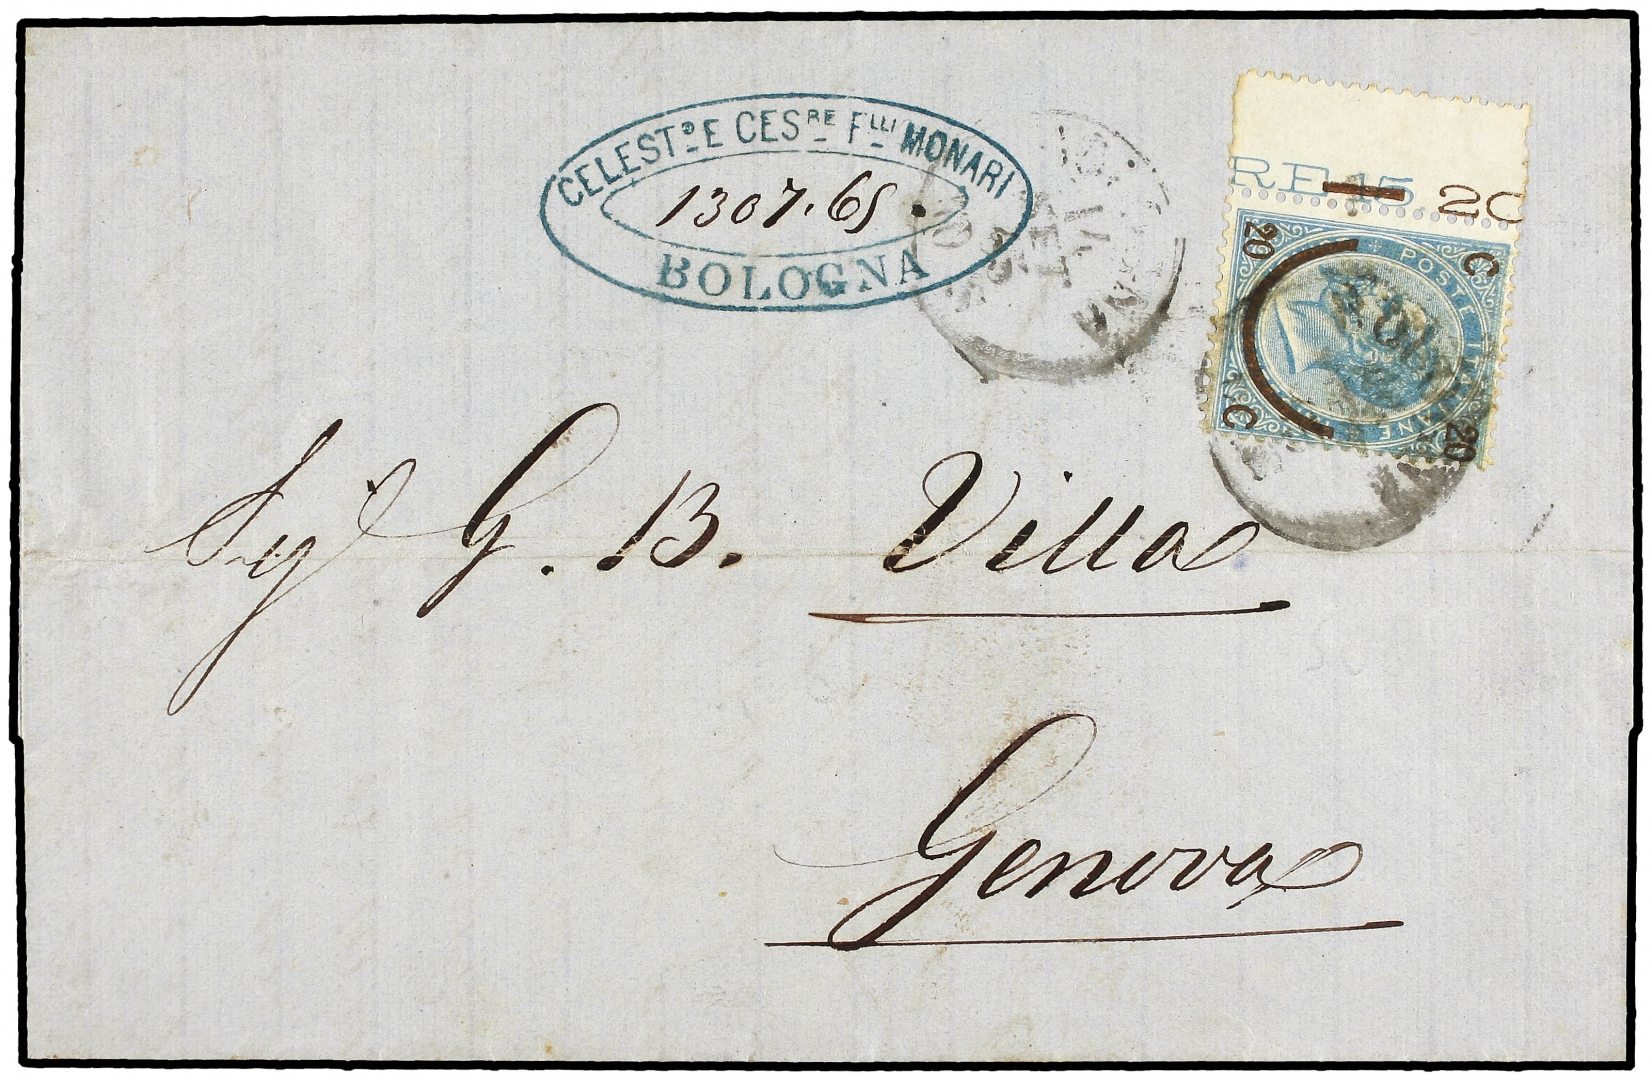 CELEST.º E CES.RE F.LLI MONARI
1307.65.
BOLOGNA
RE 15. 20
20 C
POSTE ITALIANE
C 20
Sig.r G. B. Villa
Genova